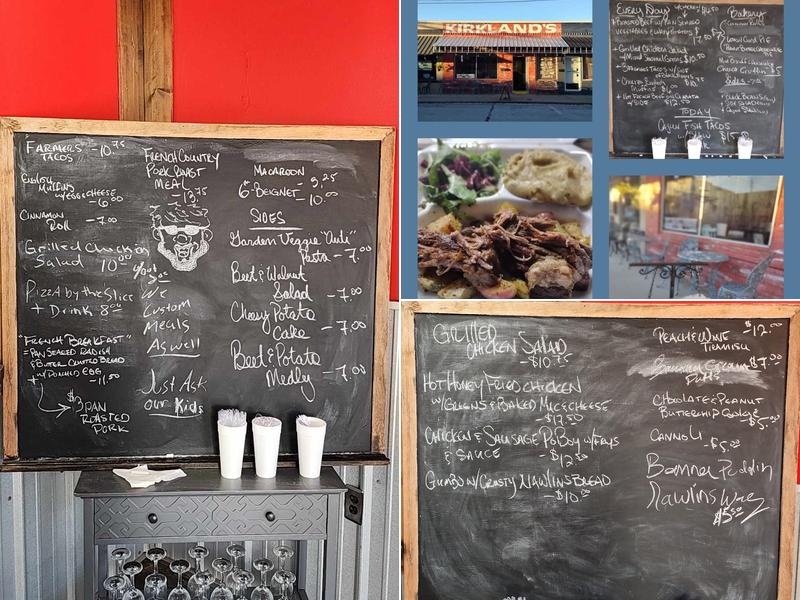 FARMERS
TACOS -10.75
ENGLISH
MUFFINS
w/EGG & CHEESE
-6.00
CINNAMON
ROLL -7.00
"Grilled Chicken
Salad 10.00
PIZZA by the Slice
+ DRINK 8.00
"FRENCH BREAKFAST"
=PAN SEARED RADISH
& BUTTER CRUSTED BREAD
w/POACHED EGG
-11.50
$3 PAN
ROASTED
PORK
FRENCH COUNTRY
PORK ROAST
MEAL
-13.75
We
Custom
Meals
As well
Just Ask
our Kids
MACAROON -3.25
6-BEIGNET-10.00
SIDES
Garden Veggie "Auli"
Pasta -7.00
Beet & Walnut
Salad -7.00
Cheesy Potato
Cake -7.00
Beet & Potato
Medly -7.00
KIRKLAND'S
EVERY DAY
Bakery
+ Grilled Chicken Salad
TODAY
CAJUN FISH TACOS
GRILLED
CHICKEN SALAD
-$10.75
HOT HONEY FRIED CHICKEN
W/GREENS & BAKED MAC & CHEESE
-$12.50
CHICKEN & SAUSAGE PO BOY w/FRYS
& SAUCE -$12.50
GUMBO w/CRUSTY NAWLINS BREAD
-$10.00
PEACH & WINE -$12.00
TIRAMISU
$7.00
PUFFS
CHOCOLATE & PEANUT
BUTTERCHIP COOKIE
-$5.00
CANNOLI -$5.00
Banna Puddin
Nawlins Way
$5.50